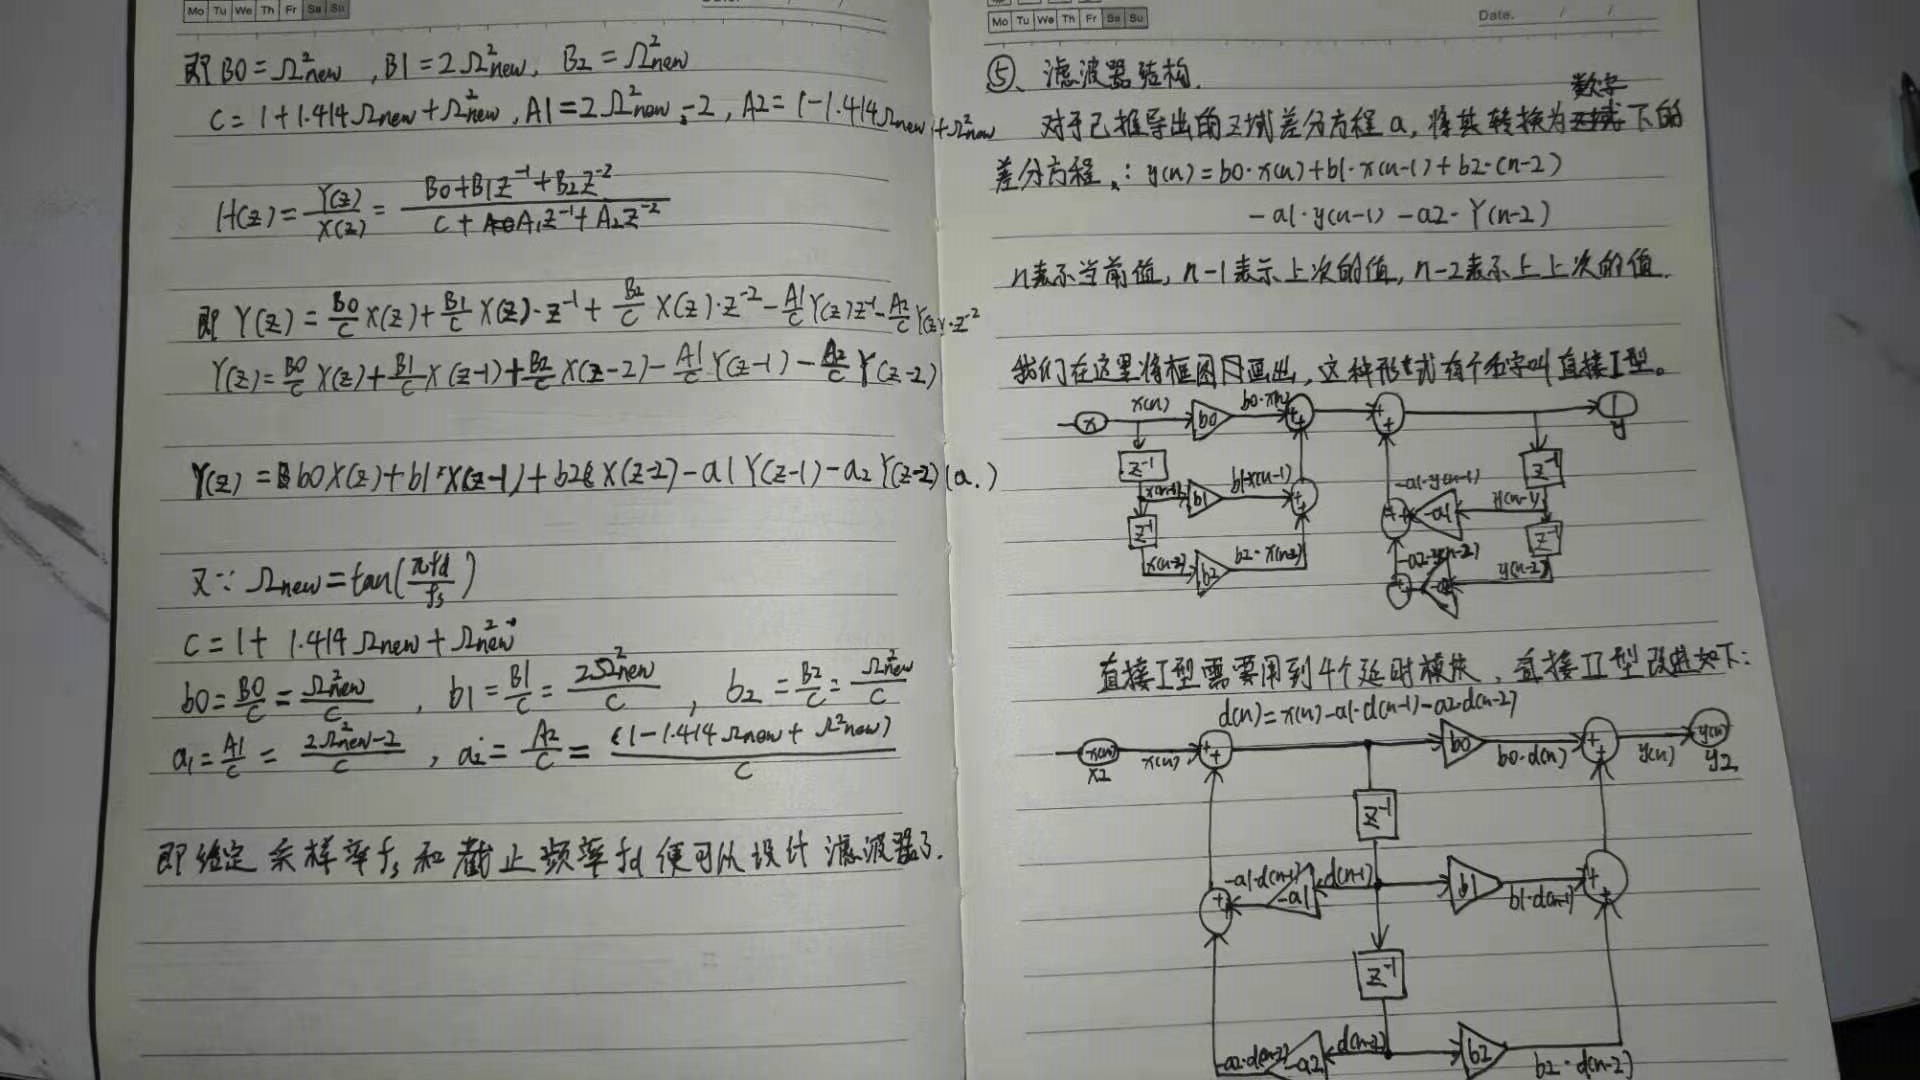 Mo Tu We Th Fr Sa Su
即 B0 = Ω²new , B1 = 2Ω²new, B2 = Ω²new
C = 1 + 1.414Ωnew + Ω²new, A1 = 2Ω²new - 2, A2 = 1 - 1.414Ωnew + Ω²new
H(z) = Y(z)/X(z) = (B0 + B1z⁻¹ + B2z⁻²)/(C + A1z⁻¹ + A2z⁻²)
即 Y(z) = B0/C X(z) + B1/C X(z)·z⁻¹ + B2/C X(z)·z⁻² - A1/C Y(z)z⁻¹ - A2/C Y(z)·z⁻²
Y(z) = B0/C X(z) + B1/C X(z-1) + B2/C X(z-2) - A1/C Y(z-1) - A2/C Y(z-2)
Y(z) = b0X(z) + b1·X(z-1) + b2X(z-2) - a1Y(z-1) - a2Y(z-2) (a.)
又∵ Ωnew = tan(πfd/fs)
C = 1 + 1.414Ωnew + Ω²new
b0 = B0/C = Ω²new/C , b1 = B1/C = 2Ω²new/C , b2 = B2/C = Ω²new/C
a1 = A1/C = (2Ω²new-2)/C , a2 = A2/C = (1-1.414Ωnew + Ω²new)/C
即给定采样率fs和截止频率fd便可以设计滤波器了.
Mo Tu We Th Fr Sa Su
Date. / /
⑤、滤波器结构.
对于已推导出的Z域差分方程a, 将其转换为数字下的
差分方程: y(n) = b0·x(n) + b1·x(n-1) + b2·(n-2)
-a1·y(n-1) - a2·Y(n-2)
n表示当前值, n-1表示上次的值, n-2表示上上次的值.
我们在这里将框图画出, 这种形式有个名字叫直接I型。
x x(n) b0 b0·x(n) + + + + 1 y
z⁻¹ x(n-1) b1 b1·x(n-1) + + -a1·y(n-1) -a1 y(n-1) z⁻¹
z⁻¹ x(n-2) b2 b2·x(n-2) -a2·y(n-2) y(n-2) z⁻¹
直接I型需要用到4个延时模块, 直接II型改进如下:
d(n) = x(n) - a1·d(n-1) - a2·d(n-2)
x(n) x2 x(n) + + b0 b0·d(n) + + y(n) y(n) y2
z⁻¹
-a1·d(n-1) -a1 d(n-1) b1 b1·d(n-1) + +
z⁻¹
-a2·d(n-2) -a2 d(n-2) b2 b2·d(n-2)